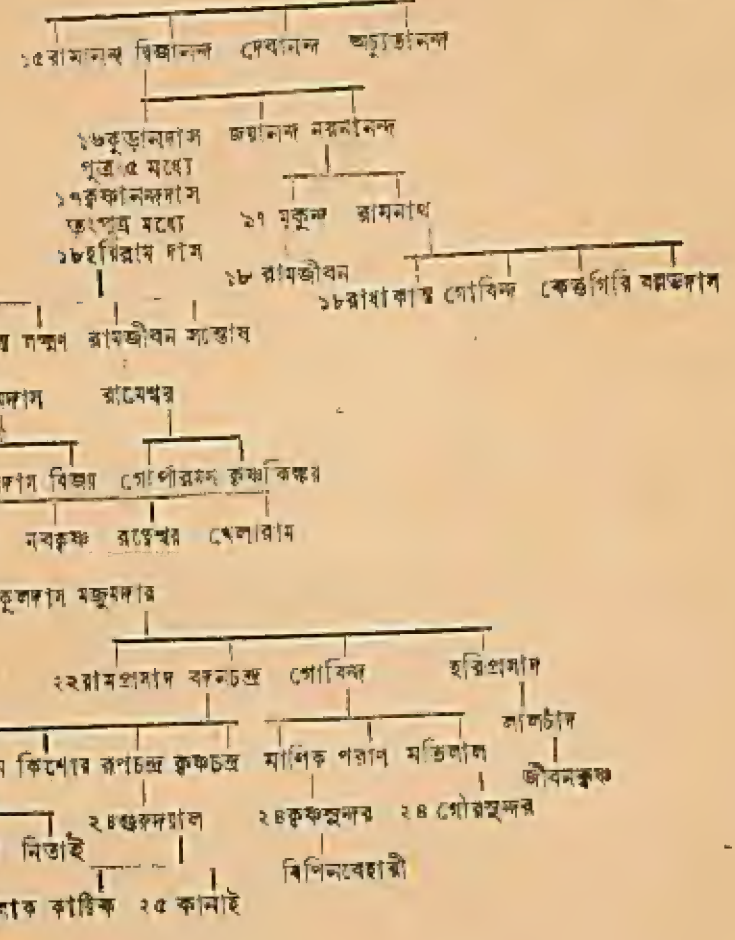 ১৫রামানন্দ দ্বিজানন্দ দেবানন্দ অচ্যুতানন্দ
১৬কুড়ানদাস জয়ানন্দ নয়নানন্দ
পুত্র ৫ মধ্যে
১৭কৃষ্ণানন্দদাস
তৎপুত্র মধ্যে
১৭ মুকুন্দ রামনাথ
১৮হরিরাম দাস
১৮ রামজীবন
১৮রাধাকান্ত গোবিন্দ বল্লভদাস
লক্ষ্মণ রামজীবন সন্তোষ
রামেশ্বর
বিজয় গোপীরমণ কৃষ্ণকিঙ্কর
নবকৃষ্ণ রত্নেশ্বর খেলারাম
কুলদাস মজুমদার
২২রামপ্রসাদ বদনচন্দ্র গোবিন্দ হরিপ্রসাদ
লালচাঁদ
কিশোর রূপচন্দ্র কৃষ্ণচন্দ্র মাণিক পরাণ মতিলাল
জীবনকৃষ্ণ
২৪গুরুদয়াল ২৪কৃষ্ণসুন্দর ২৪ গৌরসুন্দর
নিতাই
বিপিনবেহারী
কার্ত্তিক ২৫ কানাই